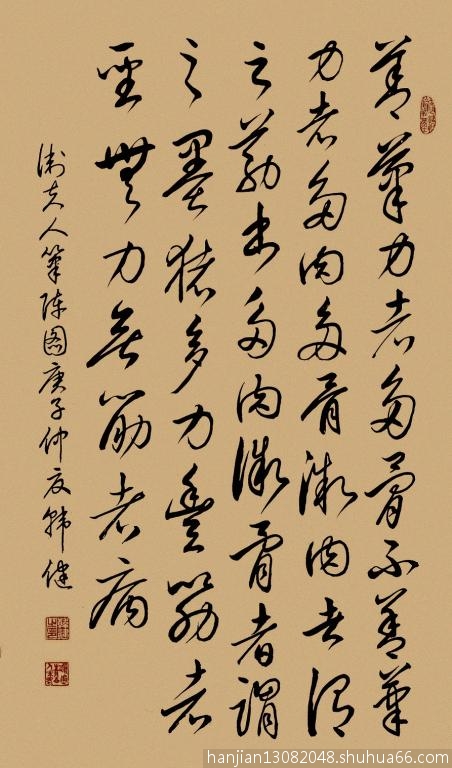 善筆力者多骨不善筆
力者多肉多骨微肉者谓
之筋書多肉微骨者謂
之墨猪多力豐筋者
聖無力無筋者病
衛夫人筆陣图庚子仲夏韩健
hanjian13082048.shuhua66.com